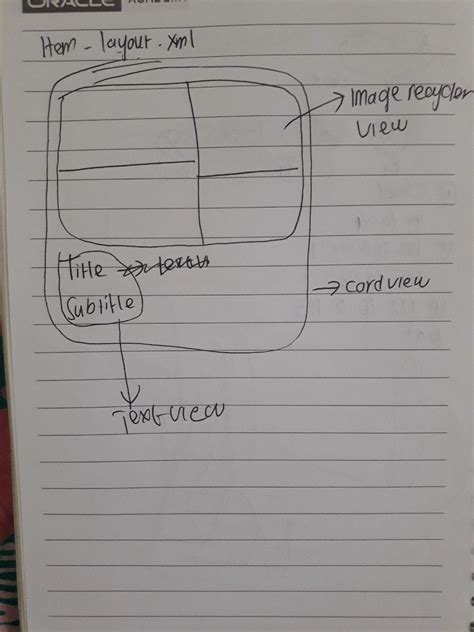 ORACLE ACADEMY
Item - layout.xml
Image recycler
view
Title
Subtitle
cordview
Text view